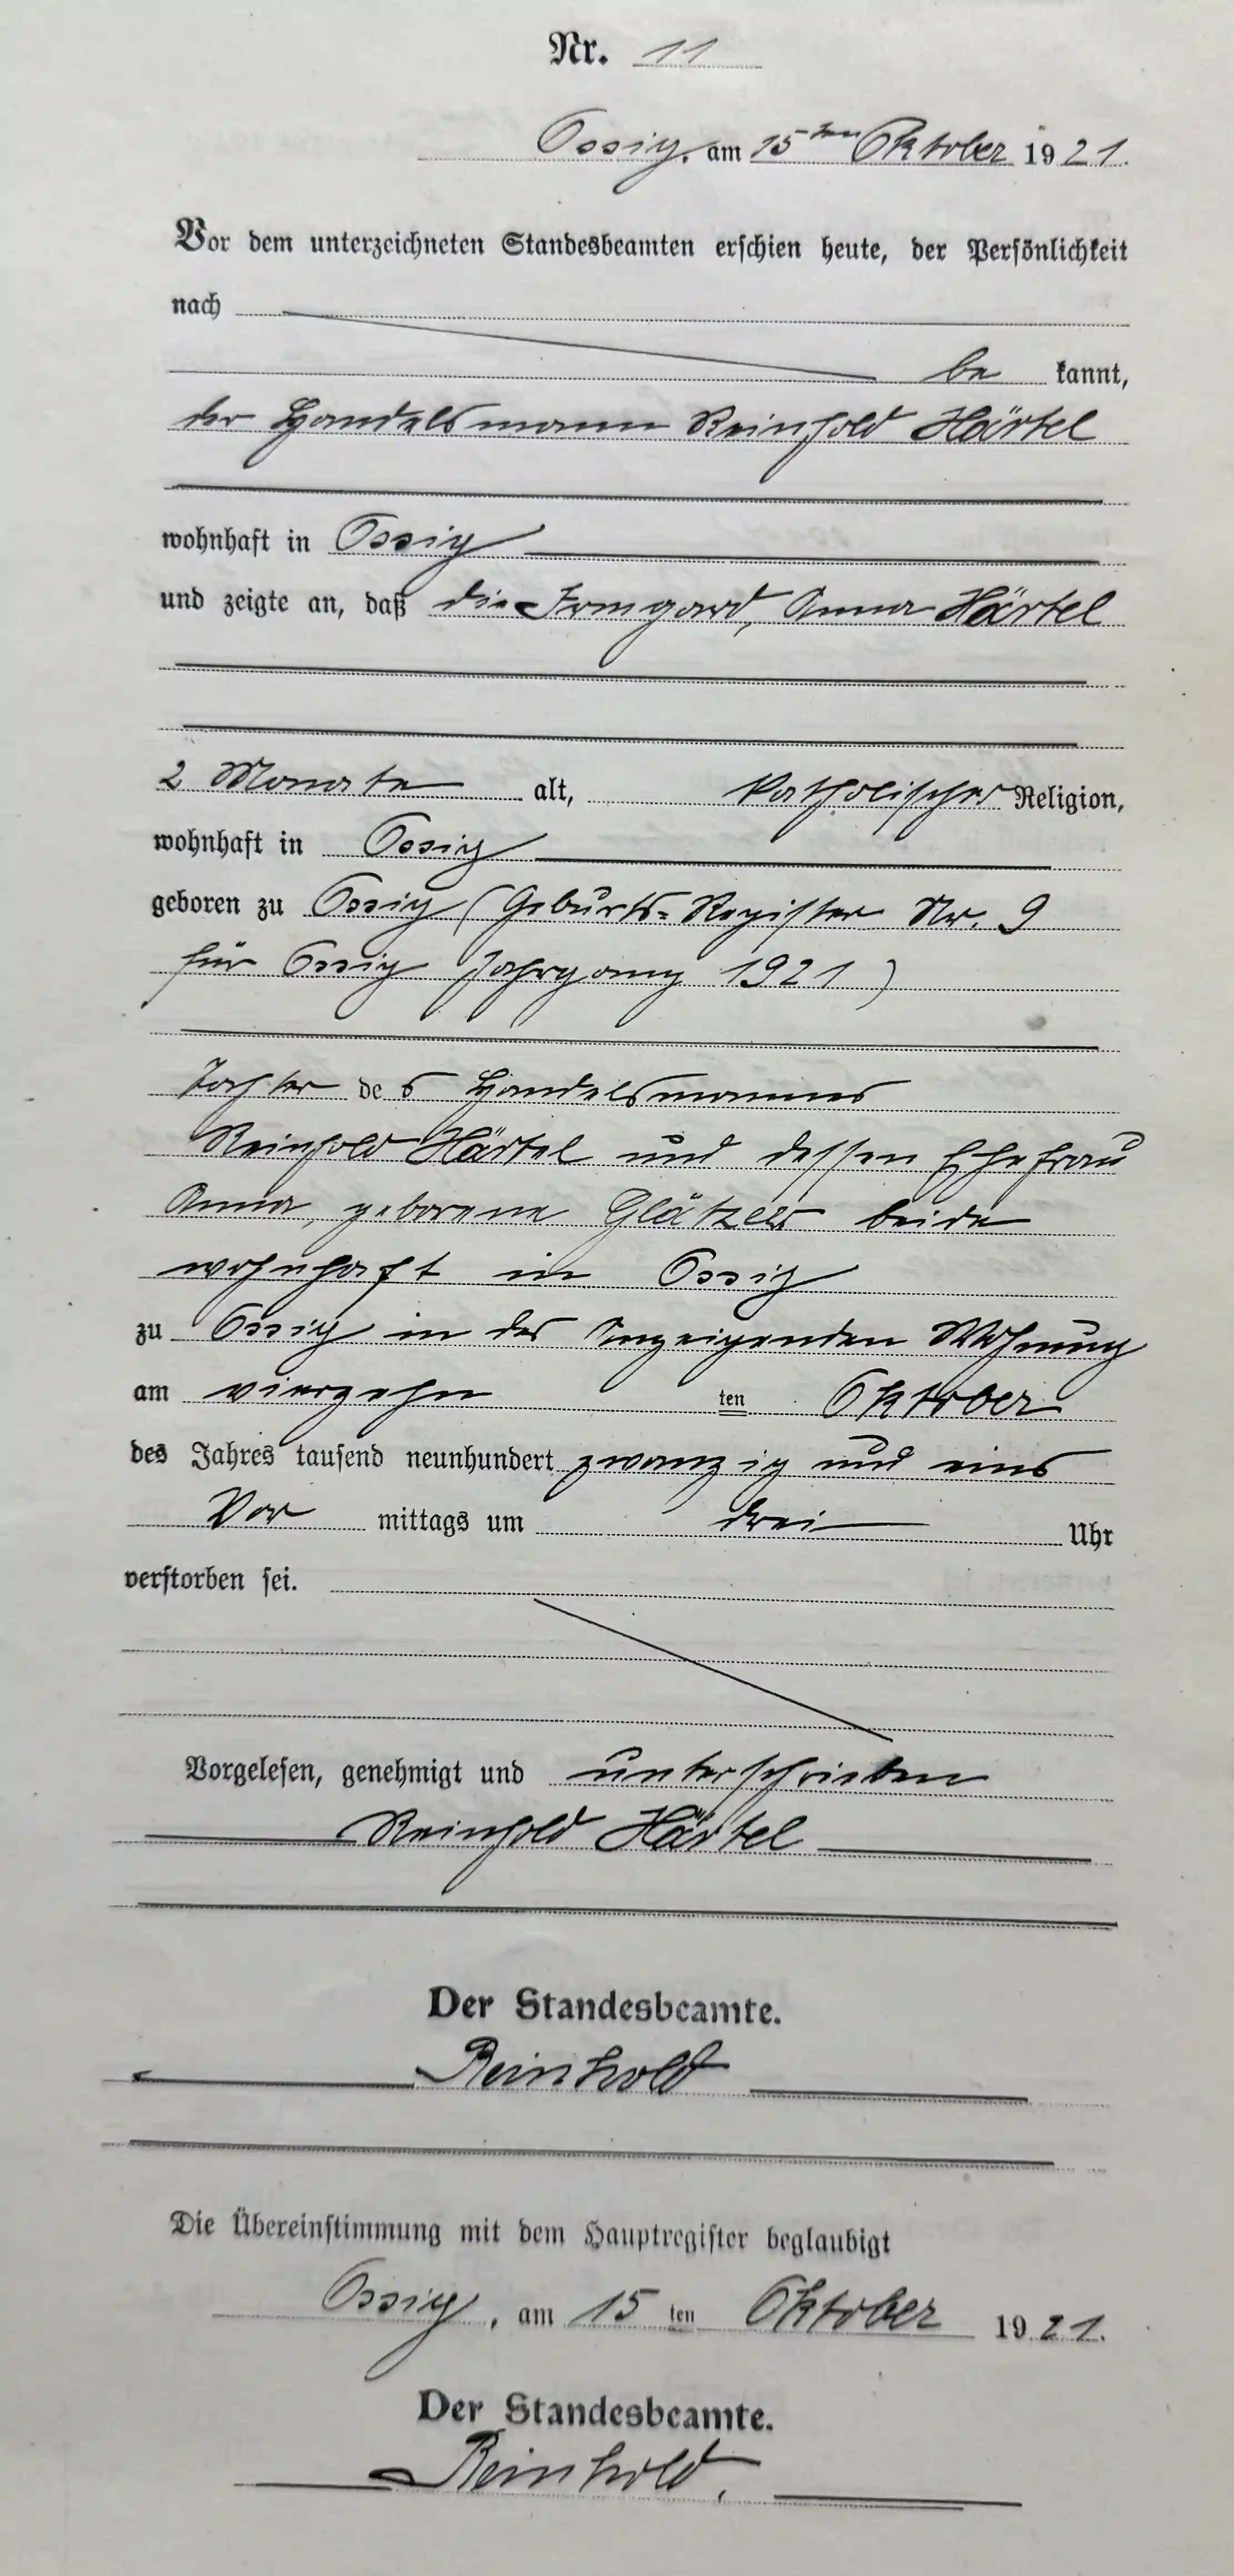 Nr. 11
Ossig, am 15ten Oktober 1921.
Vor dem unterzeichneten Standesbeamten erschien heute, der Persönlichkeit
nach
be kannt,
der Handelsmann Reinhold Härtel
wohnhaft in Ossig
und zeigte an, daß die Irmgard, Anna Härtel
2 Monate alt, katholischer Religion,
wohnhaft in Ossig
geboren zu Ossig (Geburts-Register Nr. 9
für Ossig Jahrgang 1921)
Tochter des Handelsmannes
Reinhold Härtel und dessen Ehefrau
Anna, geborene Glätzer beide
wohnhaft in Ossig
zu Ossig in des Anzeigenden Wohnung
am vierzehn ten Oktober
des Jahres tausend neunhundert zwanzig und eins
Vor mittags um drei Uhr
verstorben sei.
Vorgelesen, genehmigt und unterschrieben
Reinhold Härtel
Der Standesbeamte.
Reinhold
Die Übereinstimmung mit dem Hauptregister beglaubigt
Ossig, am 15 ten Oktober 1921.
Der Standesbeamte.
Reinhold.